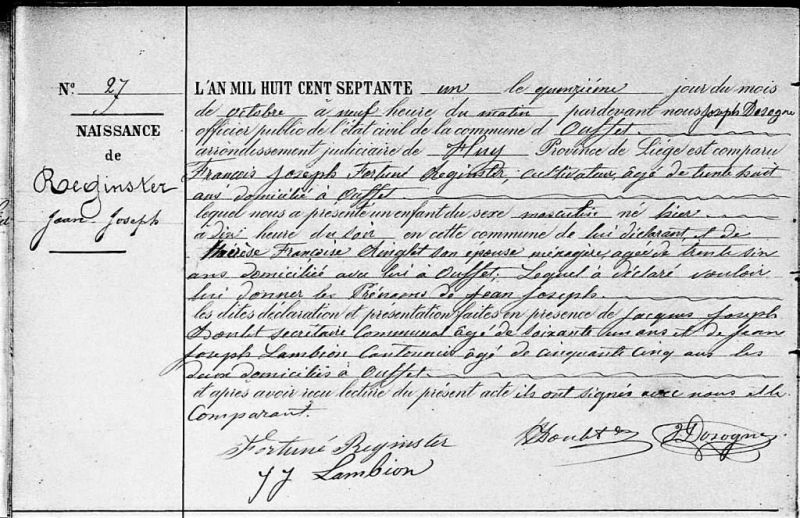 N° 27
NAISSANCE
de
Reginster
Jean-Joseph
L'AN MIL HUIT CENT SEPTANTE un le quinzième jour du mois
de octobre à neuf heure du matin pardevant nous Joseph Dosogne
officier public de l'état civil de la commune d'Ouffet
arrondissement judiciaire de Huy Province de Liége est comparu
François Joseph Fortuné Reginster, cultivateur, âgé de trente huit
ans domicilié à Ouffet
lequel nous a présenté un enfant du sexe masculin né hier
à dix heure du soir en cette commune de lui déclarant, et de
Thérèse Françoise son épouse ménagère, agée de trente six
ans domiciliée avec lui à Ouffet. Lequel à déclaré vouloir
lui donner les Prénoms de Jean Joseph.
les dites déclaration et présentation faites en présence de Jacques Joseph
Doulet secrétaire Communal âgé de soixante un ans et de Jean
Joseph Lambion Cantonnier âgé de cinquante cinq ans les
deux domiciliés à Ouffet.
et après avoir reçu lecture du présent acte ils ont signés avec nous et le
Comparant.
Fortuné Reginster
JJ Lambion
JDosogne